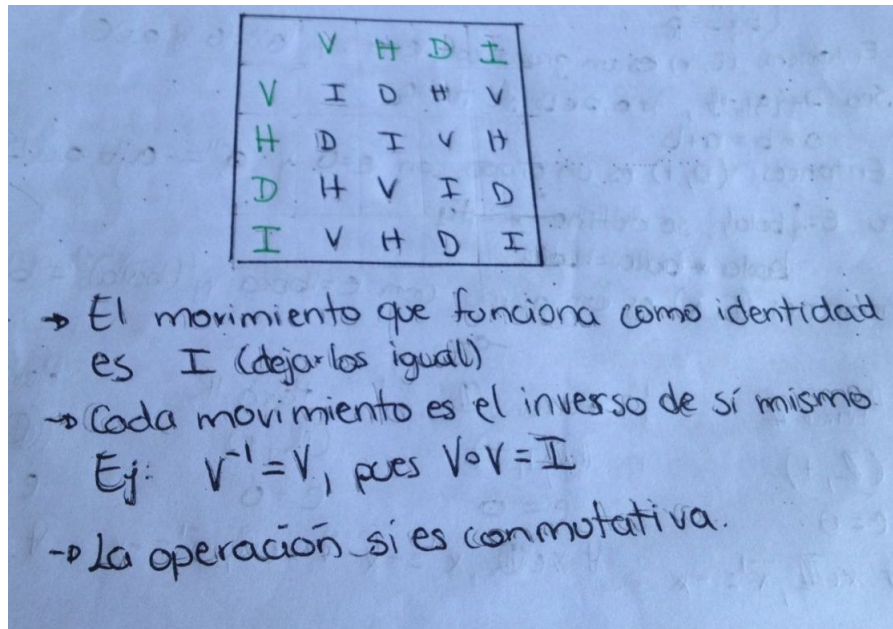 V H D I
V I D H V
H D I V H
D H V I D
I V H D I
→ El movimiento que funciona como identidad
es I (dejarlos igual)
→ Cada movimiento es el inverso de sí mismo
Ej: V⁻¹=V, pues V∘V=I
→ La operación sí es conmutativa.